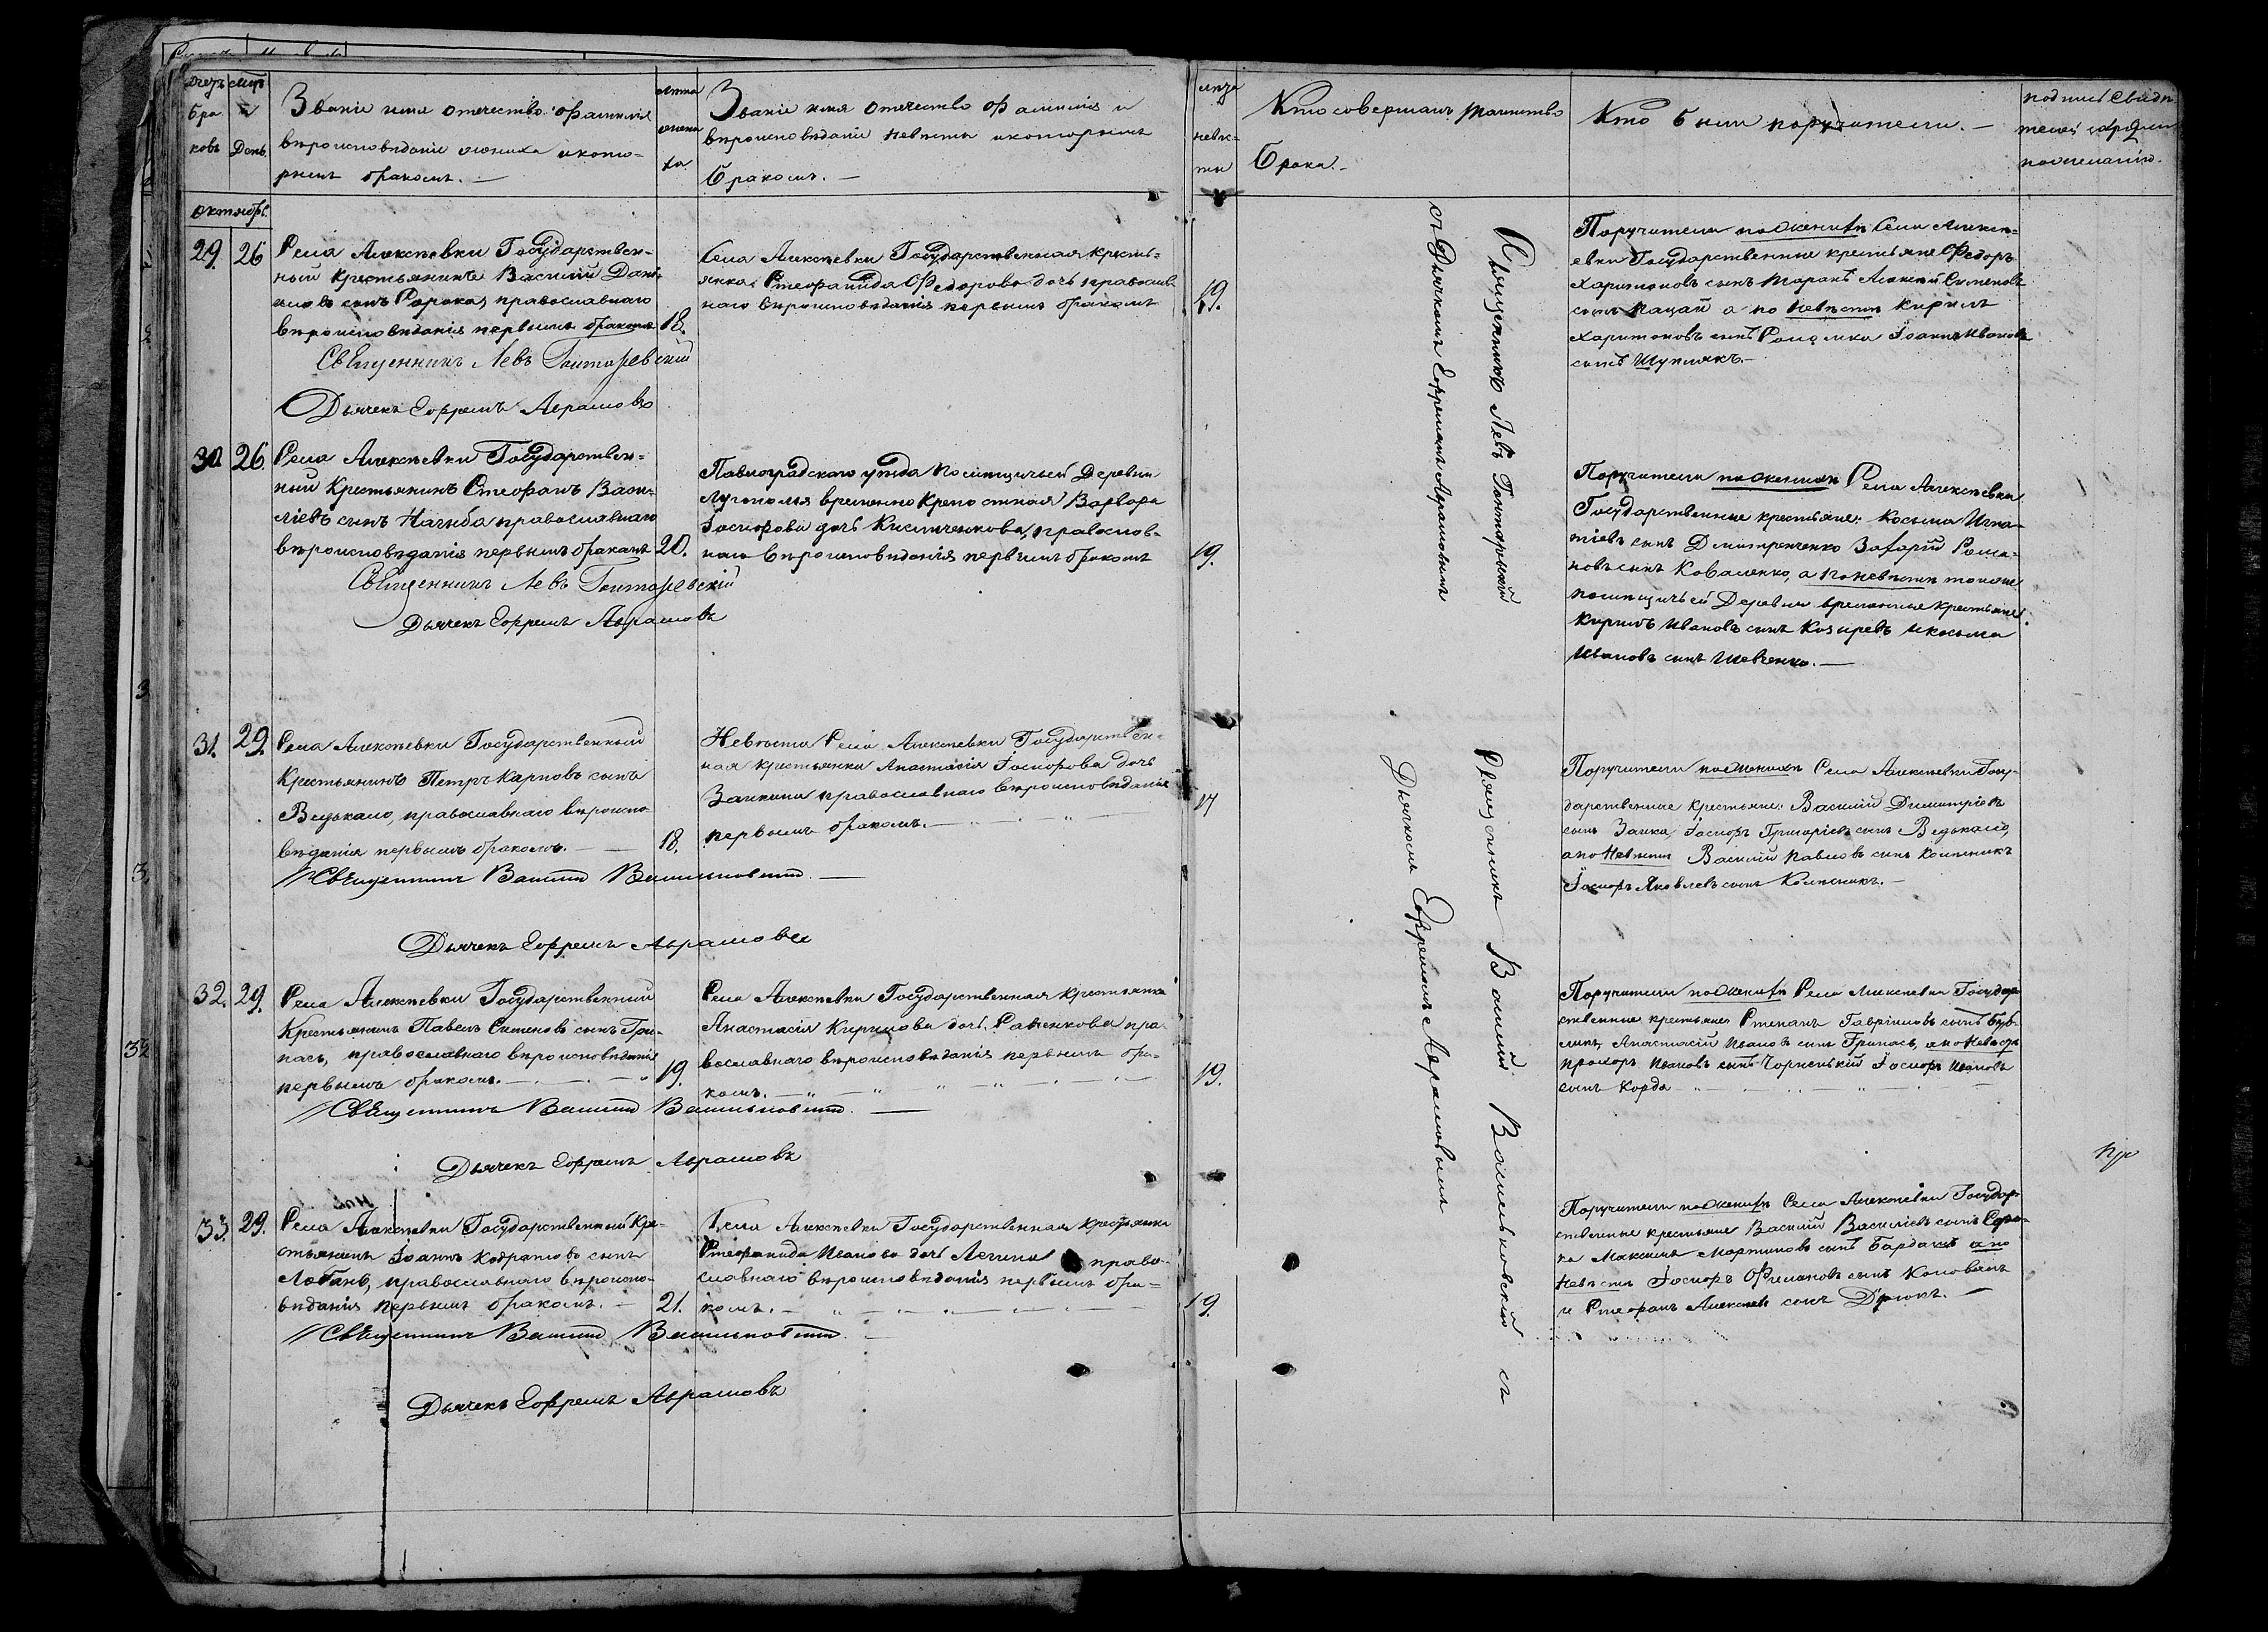 Счетъ
бра
ковъ
День.
Званіе имя отечество фамилія
вѣроисповѣданіе жениха и кото-
рымъ бракомъ. —
лѣта
жени
ха.
Званіе имя отечество фамилія и
вѣроисповѣданіе невѣсты и которымъ
бракомъ. —
лѣта
невѣс-
ты
Кто совершалъ таинство
брака. -
Кто были поручители. —
подпись свидѣ
телей
по желанію.
Октябрь.
29. 26
Села Алексѣевки Государствен-
ный крестьянинъ Василій Дани-
ловъ сынъ Сорока, православнаго
вѣроисповѣданія первымъ бракомъ
18.
Священникъ Левъ
Дьячекъ Ефремъ Абрамовъ
Села Алексѣевки Государственная кресть-
янка Стефанида Федорова дочь православ
наго вѣроисповѣданія первымъ бракомъ
19.
Священникъ Левъ
съ Дьячкомъ Ефремомъ Абрамовымъ
Поручители по женихѣ Села Алексѣ-
евки Государственные крестьяне Федоръ
Харитоновъ сынъ Таранъ Алексѣй Симеоновъ
сынъ Мацай а по невѣстѣ Кирилъ
Харитоновъ сынъ Іоаннъ Ивановъ
сынъ Шуплякъ. —
30. 26.
Села Алексѣевки Государствен-
ный Крестьянинъ Стефанъ Васи-
ліевъ сынъ Нагиба православнаго
вѣроисповѣданія первымъ бракомъ
20.
Священникъ Левъ
Дьячекъ Ефремъ Абрамовъ
Павлоградскаго уѣзда Помѣщичьей Деревни
временно крепостная Варвара
Іосифова дочь православ-
наго вѣроисповѣданія первымъ бракомъ
19.
Поручители по женихѣ Села Алексѣевки
Государственные крестьяне: Косьма Игна-
тіевъ сынъ Дмитренченко Захарій Рома-
новъ сынъ Коваленко, а по невѣстѣ тоже
помѣщичьей Деревни временные крестьяне
Кирилъ Ивановъ сынъ Козыревъ и Косьма
Ивановъ сынъ Шевченко. —
31. 29.
Села Алексѣевки Государственный
Крестьянинъ Петръ Карповъ сынъ
Ведькало, православнаго вѣроиспо-
вѣданія первымъ бракомъ. —
18.
Священникъ Василій Васильковскій. —
Дьячекъ Ефремъ Абрамовъ
Невѣста Села Алексѣевки Государствен-
ная крестьянка Анастасія Іосифова дочь
Заикина православнаго вѣроисповѣданія
первымъ бракомъ. —
17
Священникъ Василій Васильковскій съ
Дьячкомъ Ефремомъ Абрамовымъ
Поручители по женихѣ Села Алексѣевки Госу-
дарственные крестьяне: Василій Димитріевъ
сынъ Заика Іосифъ Григоріевъ сынъ Ведькало,
а по Невѣстѣ Василій Павловъ сынъ Колѣсникъ
Іосифъ Яковлевъ сынъ Колѣсникъ. —
32. 29.
Села Алексѣевки Государственный
Крестьянинъ Павелъ Симеоновъ сынъ Гри-
пась, православнаго вѣроисповѣданія
первымъ бракомъ. —
19.
Священникъ Василій Васильковскій. —
Дьячекъ Ефремъ Абрамовъ
Села Алексѣевки Государственная крестьянка
Анастасія Кирилова дочь Савенкова пра-
вославнаго вѣроисповѣданія первымъ бра-
комъ. —
19.
Поручители по женихѣ Села Алексѣевки Государ-
ственные крестьяне Стефанъ Гавріиловъ сынъ Буб-
ликъ, Анастасій Ивановъ сынъ Грипась, а по Невѣстѣ
Прохоръ Ивановъ сынъ Чорненькій Іосифъ Ивановъ
сынъ Корда —
33. 29.
Села Алексѣевки Государственный Кре-
стьянинъ Іоаннъ Кодратовъ сынъ
Лобань, православнаго вѣроиспо-
вѣданія первымъ бракомъ. —
21.
Священникъ Василій Васильковскій. —
Дьячекъ Ефремъ Абрамовъ
Села Алексѣевки Государственная крестьянка
Стефанида Иванова дочь право-
славнаго вѣроисповѣданія первымъ бра-
комъ. —
19.
Поручители по женихѣ Села Алексѣевки Государ-
ственные крестьяне Василій Василіевъ сынъ Соро-
ка Максимъ Мартиновъ сынъ Бардашъ а по
Невѣстѣ Іосифъ Филиповъ сынъ Коновалъ
и Стефанъ Алексѣевъ сынъ Дрюкъ. —